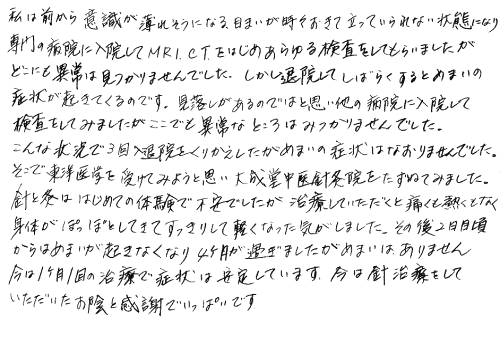 私は前から意識が薄れそうになる、目まいが時々おきて立っていられない状態になり
専門の病院に入院してMRI.CT.をはじめあらゆる検査をしてもらいましたが
どこにも異常は見つかりませんでした。しかし退院してしばらくするとめまいの
症状が起きてくるのです。見落しがあるのではと思い他の病院に入院して
検査をしてみましたがここでも異常なところはみつかりませんでした。
こんな状況で3回入退院をくりかえしたがめまいの症状はなおりませんでした。
そこで東洋医学を受けてみようと思い大成堂中医針灸院をたずねてみました。
針と灸ははじめての体験で不安でしたが治療していただくと痛くも熱くもなく
身体がぽっぽとしてきてすっきりして軽くなった気がしました。その後2日目頃
からはめまいが起きなくなり4ヶ月が過ぎましたがめまいはありません
今は1ヶ月1回の治療で症状は安定しています。今は針治療をして
いただいたお陰と感謝でいっぱいです